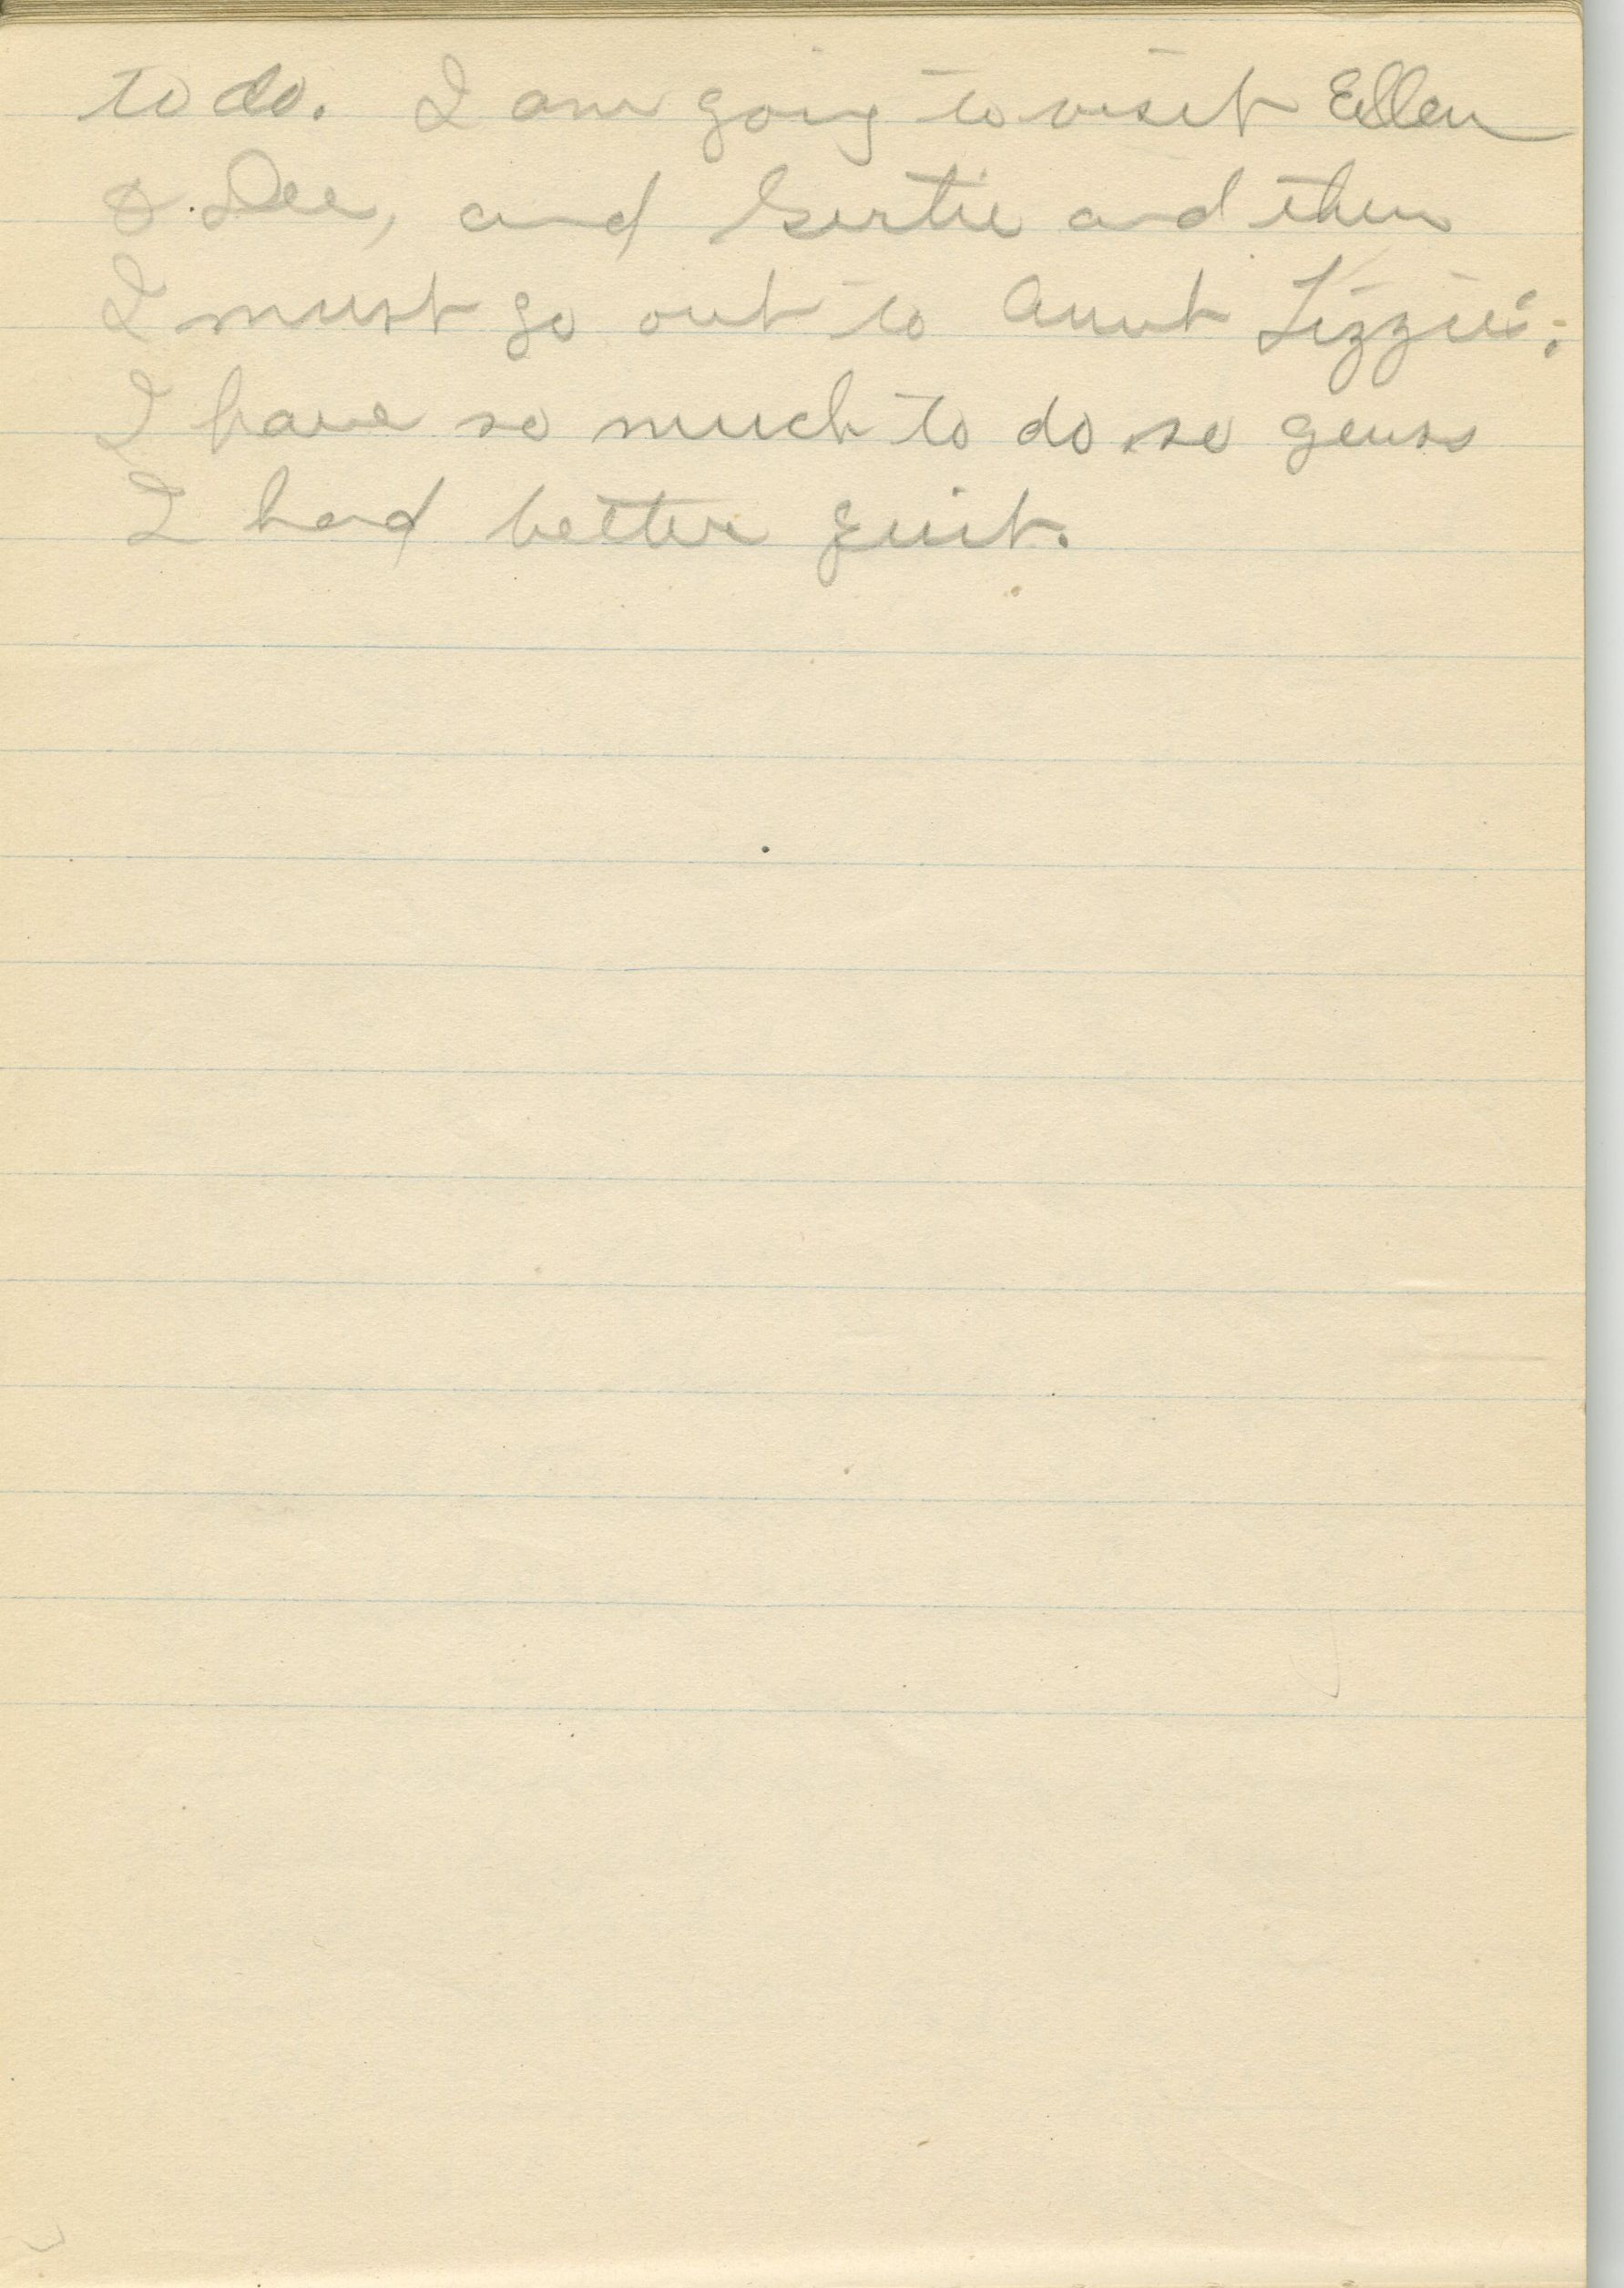 to do. I am going to visit Ellen
& Dee, and Gertie and then
I must go out to Aunt Lizzie's;
I have so much to do so guess
I had better quit.